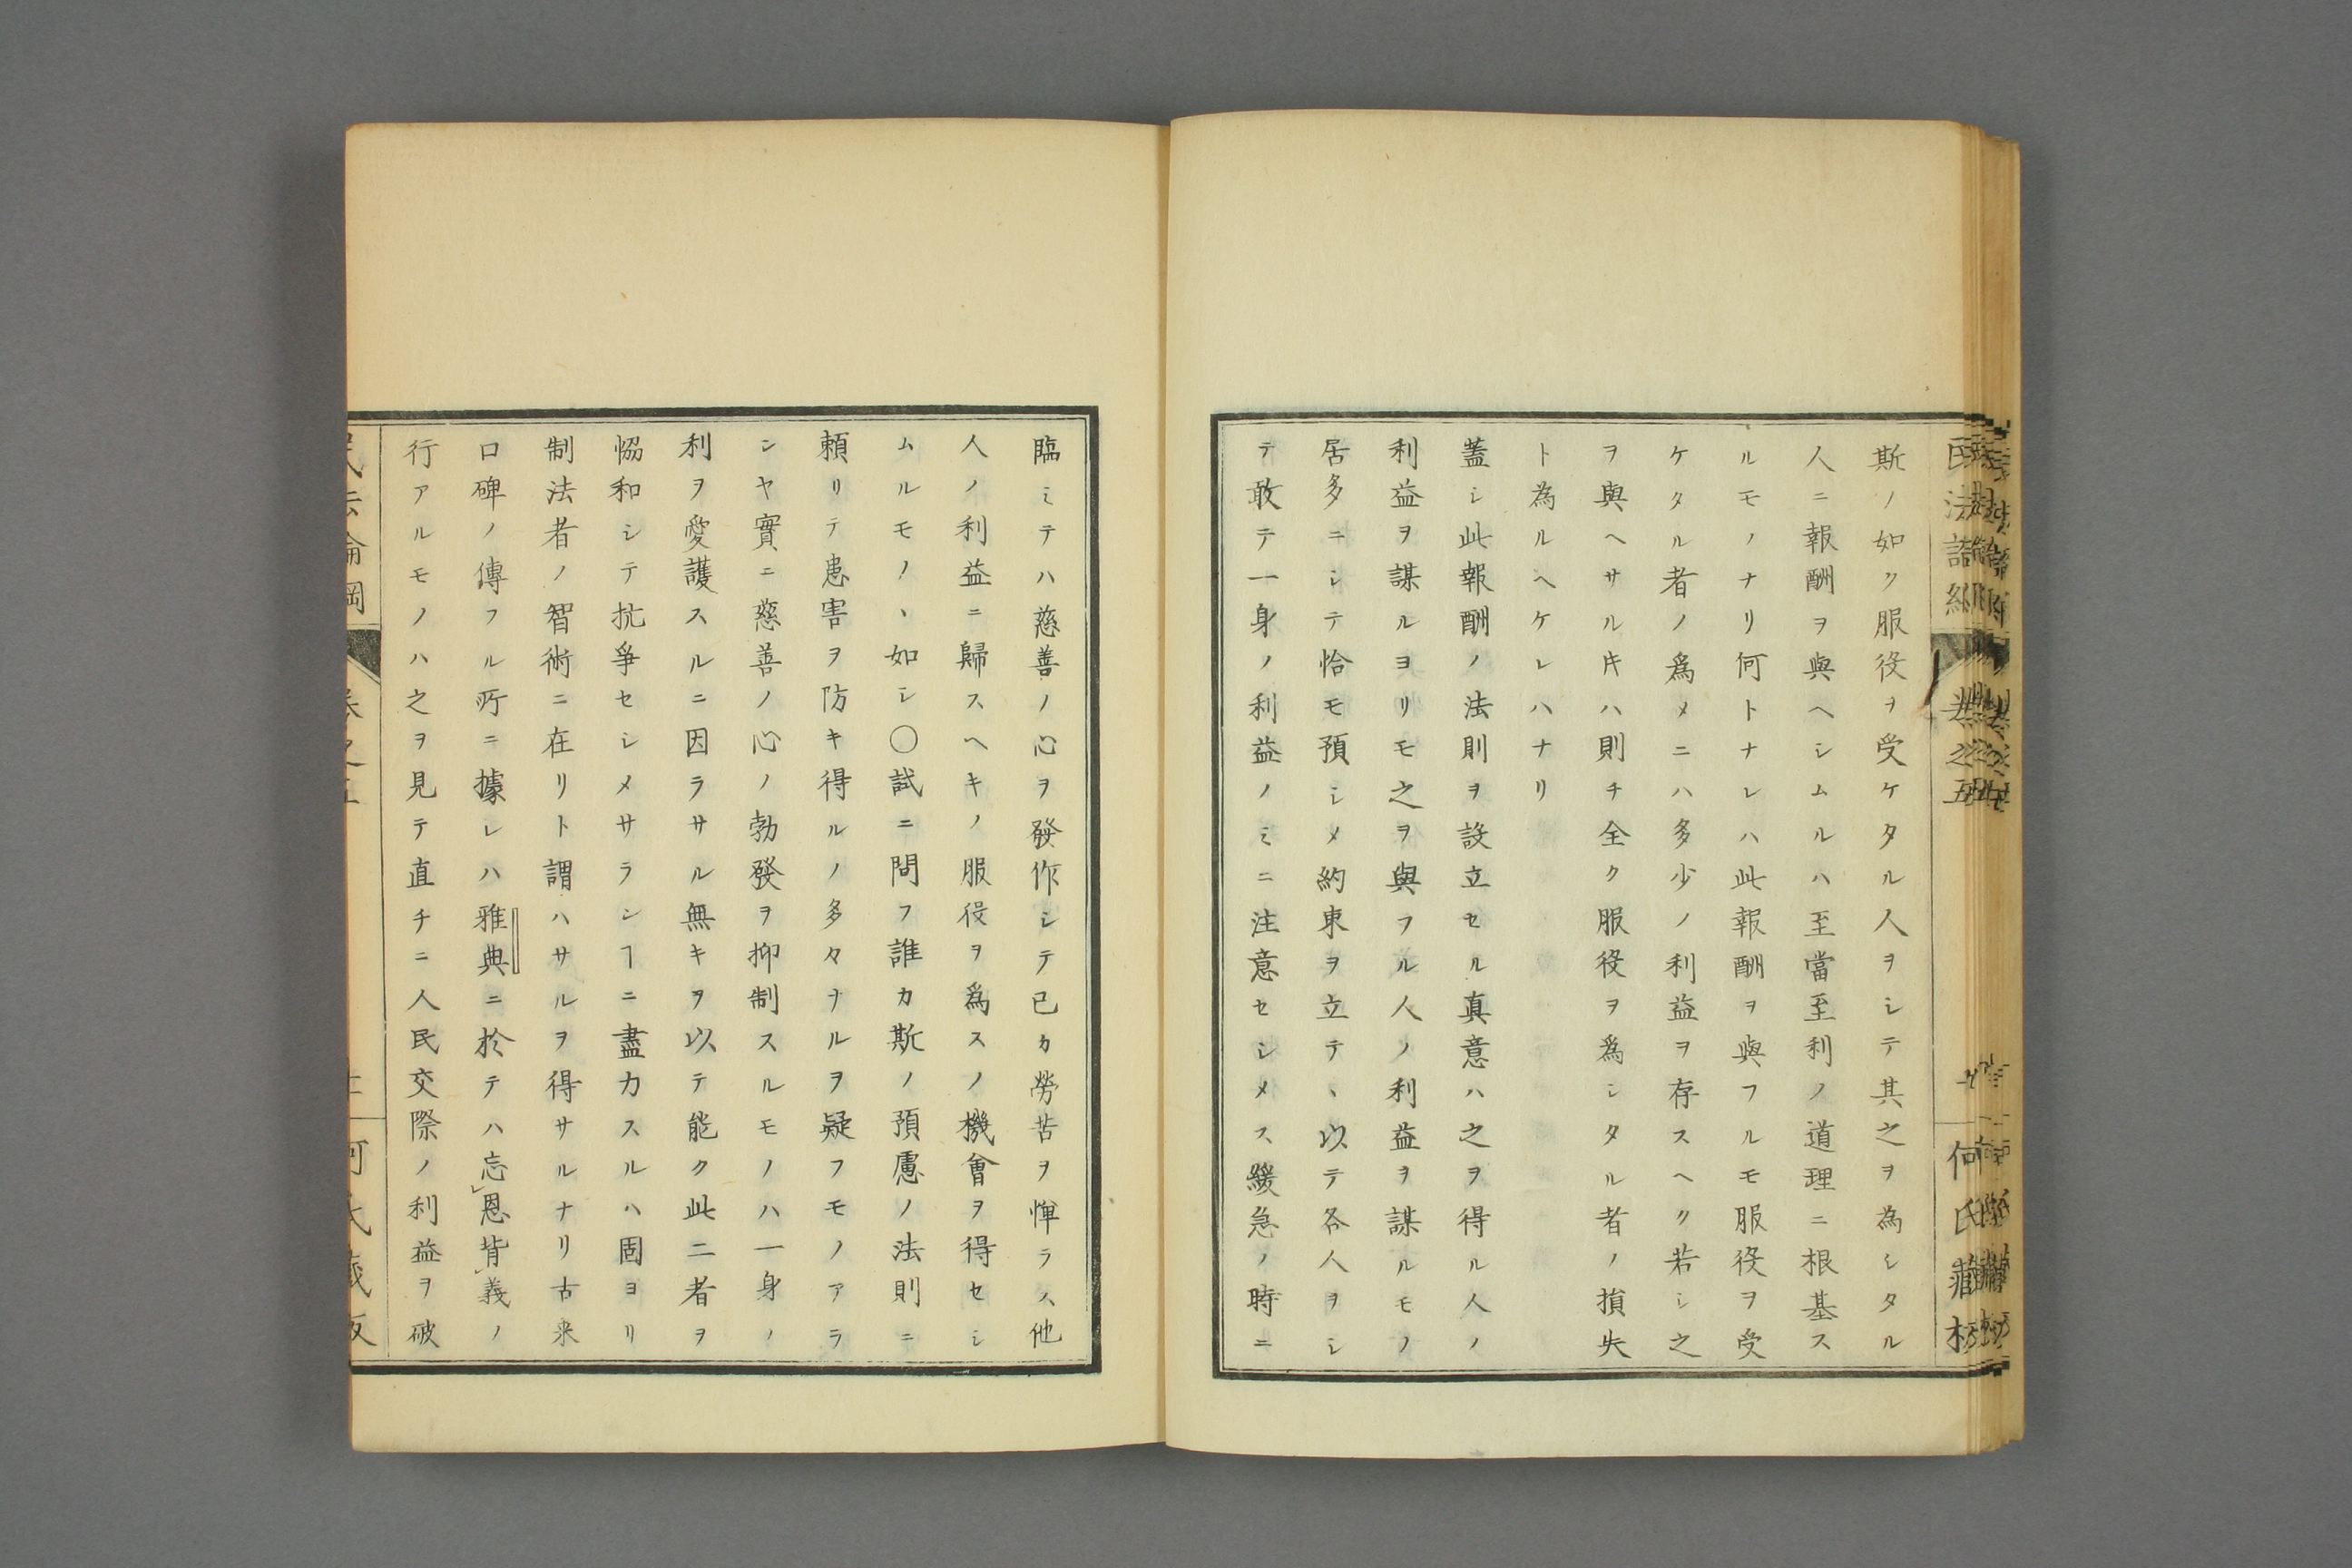 斯ノ如ク服役ヲ受ケタル人ヲシテ其之ヲ為シタル
人ニ報酬ヲ與ヘシムルハ至當至利ノ道理ニ根基ス
ルモノナリ何トナレハ此報酬ヲ與フルモ服役ヲ受
ケタル者ノ爲メニハ多少ノ利益ヲ存スヘク若シ之
ヲ與ヘサル𪜈ハ則チ全ク服役ヲ爲シタル者ノ損失
ト為ルヘケレハナリ
蓋シ此報酬ノ法則ヲ設立セル真意ハ之ヲ得ル人ノ
利益ヲ謀ルヨリモ之ヲ與フル人ノ利益ヲ謀ルモノ
居多ニシテ恰モ預シメ約束ヲ立テヽ以テ各人ヲシ
テ敢テ一身ノ利益ノミニ注意セシメス緩急ノ時ニ
臨ミテハ慈善ノ心ヲ發作シテ已カ勞苦ヲ憚ラス他
人ノ利益ニ歸スヘキノ服役ヲ爲スノ機會ヲ得セシ
ムルモノヽ如シ〇試ニ問フ誰カ斯ノ預慮ノ法則ニ
頼リテ患害ヲ防キ得ルノ多々ナルヲ疑フモノアラ
ンヤ實ニ慈善ノ心ノ勃發ヲ抑制スルモノハ一身ノ
利ヲ愛護スルニ因ラサル無キヲ以テ能ク此二者ヲ
恊和シテ抗爭セシメサランヿニ盡力スルハ固ヨリ
制法者ノ智術ニ在リト謂ハサルヲ得サルナリ古来
口碑ノ傳フル所ニ據レハ雅典ニ於テハ忘恩背義ノ
行アルモノハ之ヲ見テ直チニ人民交際ノ利益ヲ破